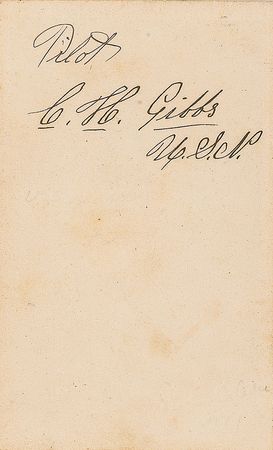 Pilot
C. H. Gibbs
U.S.N.